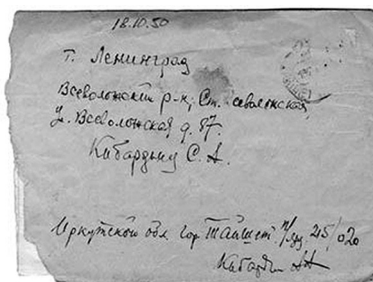 18.10.50
г. Ленинград
Всеволожский р-н, Ст. Всеволожская
Ул. Всеволожская д. 37.
Кибардину С. А.
Иркутской обл. гор. Тайшет п/ящ. 215/020
Кибардин